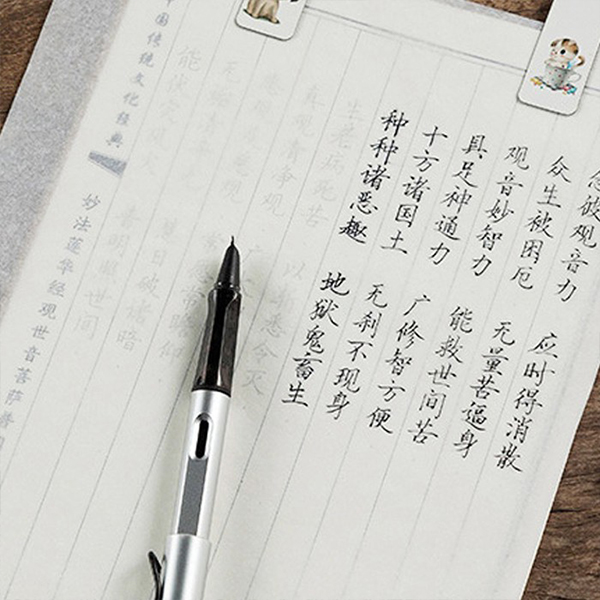 念彼观音力 应时得消散
众生被困厄 无量苦逼身
观音妙智力 能救世间苦
具足神通力 广修智方便
十方诸国土 无刹不现身
种种诸恶趣 地狱鬼畜生
生老病死苦 以悉令灭
真观清净观
常瞻仰
无 日破诸暗
能伏 普明照世间
中国传统文化经典 妙法莲华经观世音菩萨普